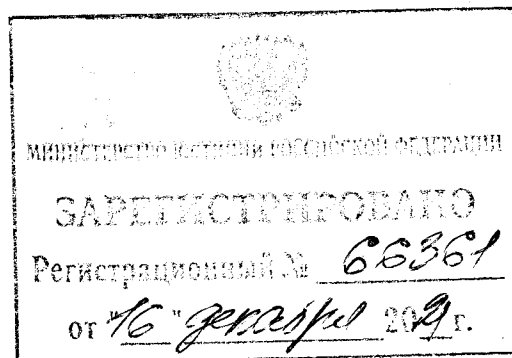 МИНИСТЕРСТВО ЮСТИЦИИ РОССИЙСКОЙ ФЕДЕРАЦИИ
ЗАРЕГИСТРИРОВАНО
Регистрационный № 66361
от "16" декабря 2021 г.